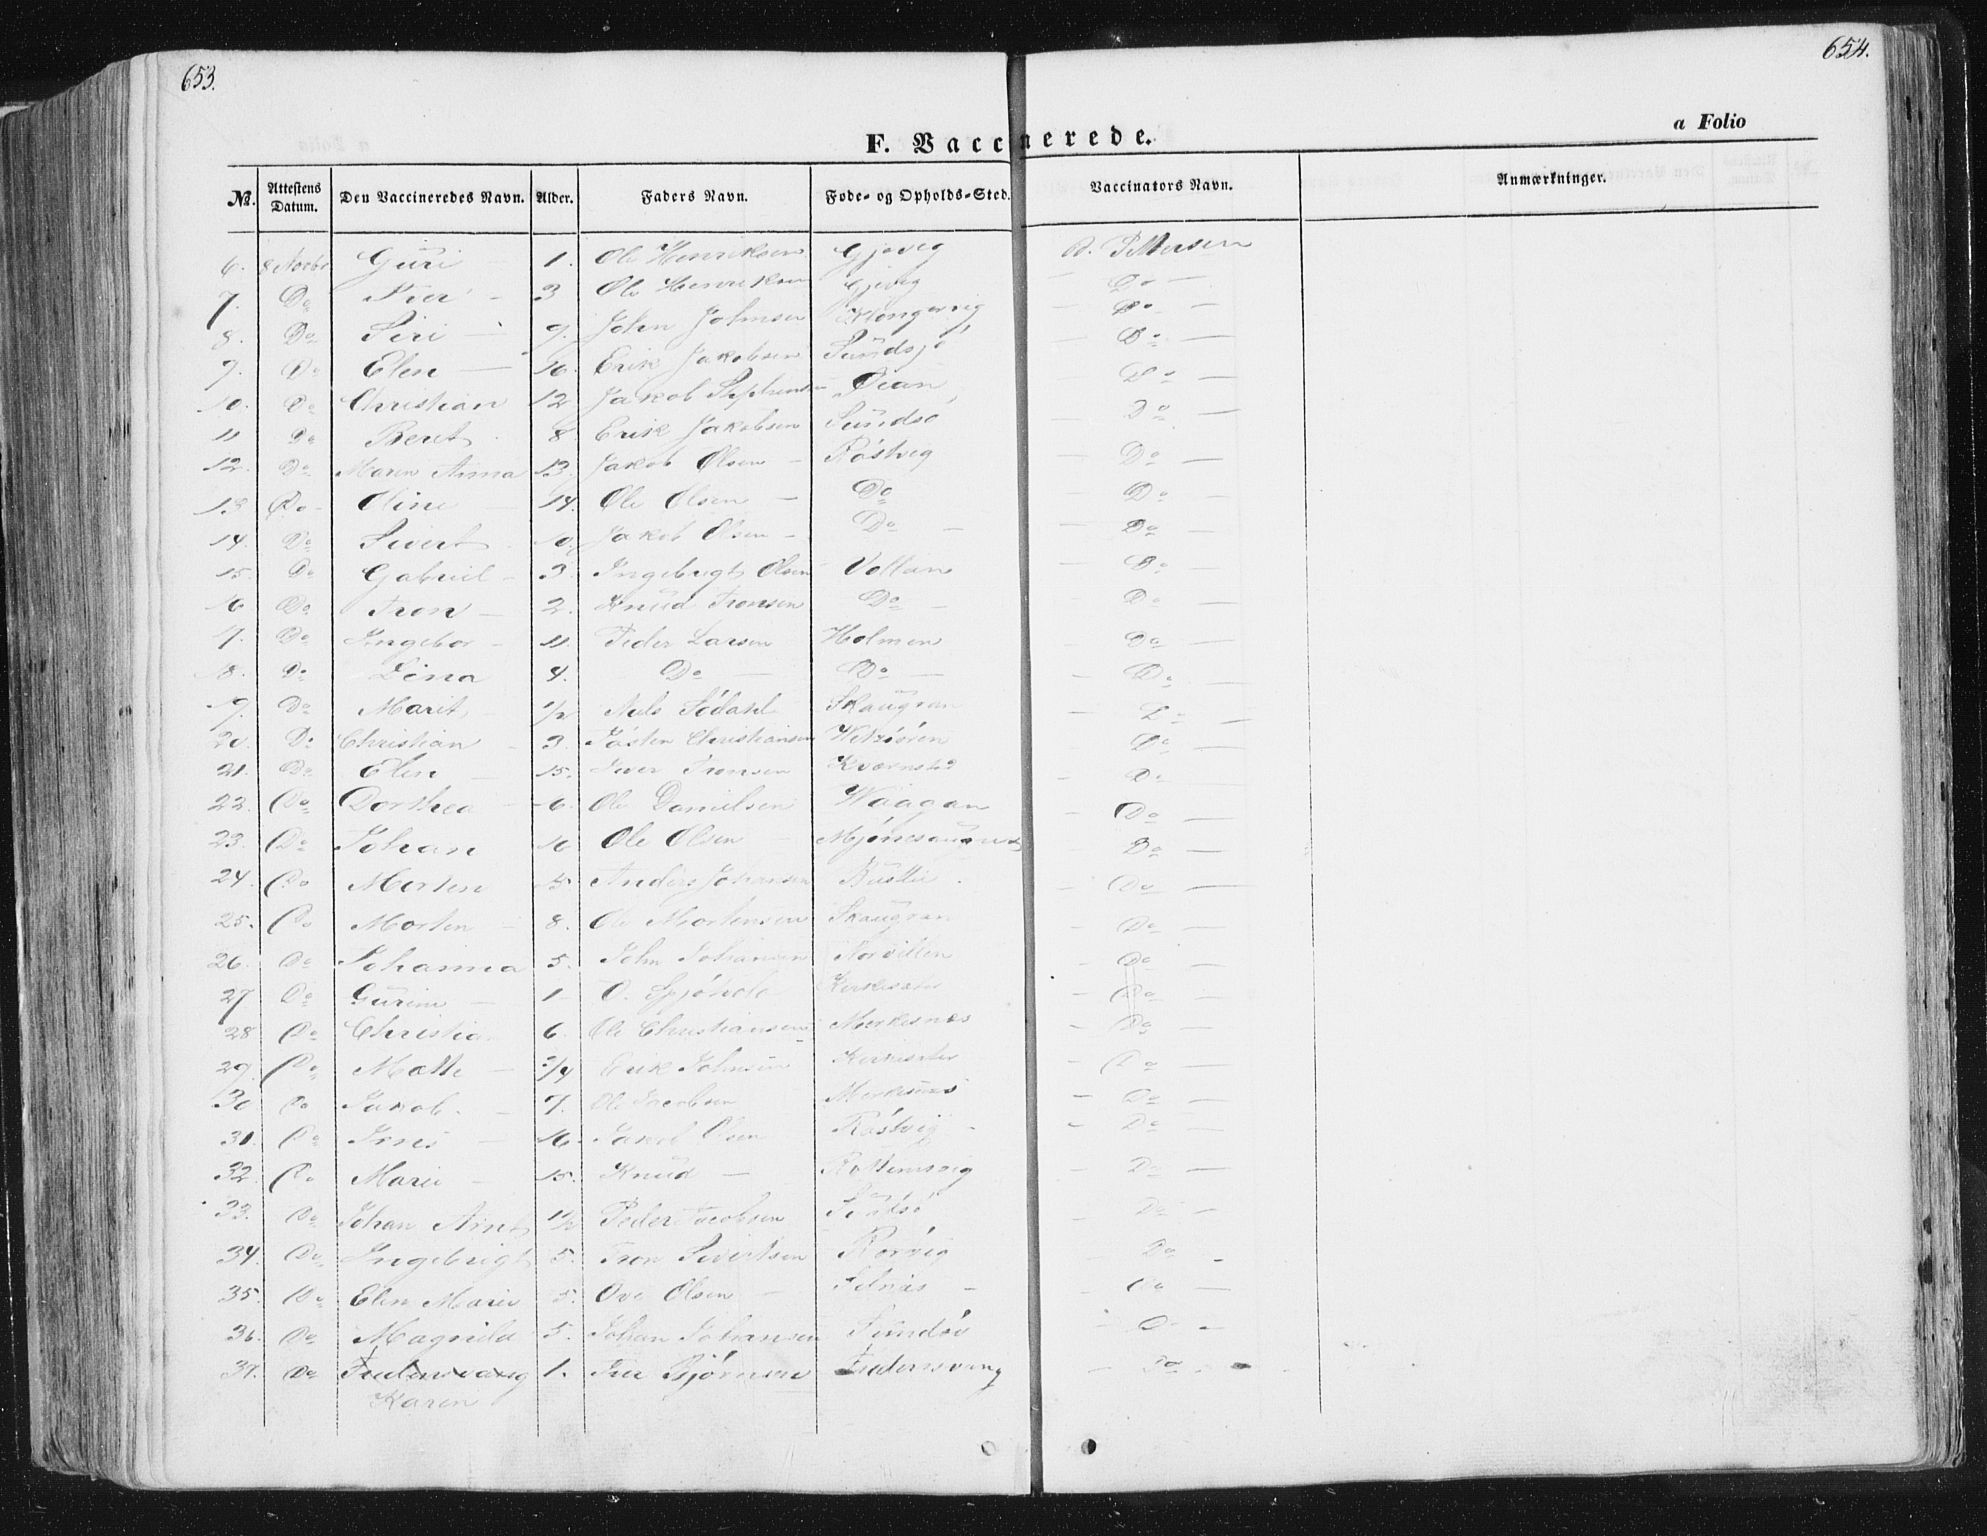 653.
654.
a Folio
F. Vaccinerede.
№. Attestens Datum. Den Vaccineredes Navn. Alder. Faders Navn. Føde- og Opholds-Sted. Vaccinators Navn. Anmærkninger.
6. 8 Novbr Guri 1. Ole Henriksen Gjøvig
7. Do 3 Ole Henriksen Gjøvig Do
8. Do Siri 9. John Johnsen Do
9. Do Elen 10. Erik Jakobsen Sundsjø Do
10. Do Christian 12 Jakob Do
11 Do Beret 8 Erik Jakobsen Sundsø Do
12. Do Maren Anna 13. Jakob Olsen Røstvig Do
13. Do Oline 14. Ole Olsen Do Do
14. Do Sivert 10. Jakob Olsen Do Do
15. Do Gabriel 3. Ingebrigt Olsen Vollan Do
16 Do Tron 2. Knud Tronsen Do Do
17. Do Ingebor 11. Peder Larsen Holmen Do
18. Do Lina 4. Do Do Do
19. Do Marit 1/2 Nils Skaugran Do
20. Do Christian 3. Christiansen Do
21. Do Elen 15. Iver Tronsen Kværnstad Do
22. Do Dorthea 6. Ole Danielsen Waagan Do
23. Do Johan 10 Ole Olsen Do
24. Do Morten 5 Anders Johansen Bustlie Do
25. Do Morten 8. Ole Mortensen Skaugran Do
26. Do Johanna 5. John Johansen Do
27 Do Gurine 1 O. Kirkesæter Do
28 Do 6. Ole Christiansen Merkesnes Do
29. Do 3/4 Erik Johnsen Kirkesæter Do
30 Do Jakob 7. Ole Jacobsen Merkesnes Do
31. Do 16. Jakob Olsen Røstvig Do
32. Do Marie 15. Knud Do
33. Do Johan Arnt 1/2 Peder Jacobsen Do
34. Do Ingebrigt 5. Tron Sivertsen Rørvig Do
35. Do Elen Marie 5. Ove Olsen Selnæs Do
36. Do 5. Johan Johansen Sundsø Do
37. Do 1. Bjørnsen Do
Karen